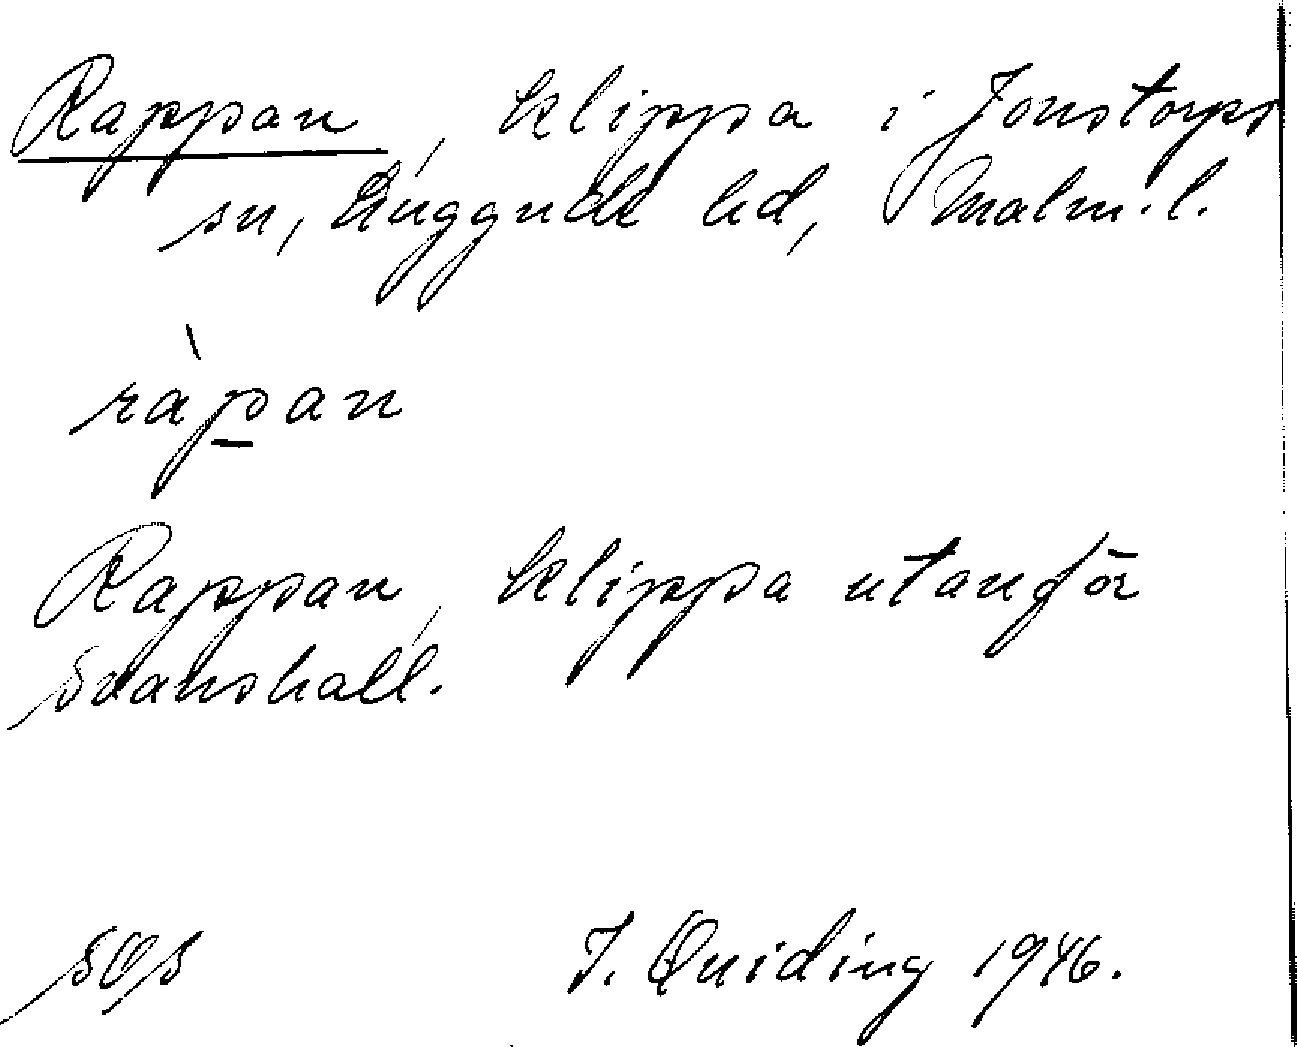 Rappan, klippa i Jonstorps
sn, Luggude hd, Malm.l.
ràpan
Rappan, klippa utanför
Svanshall.
J. Quiding 1946.